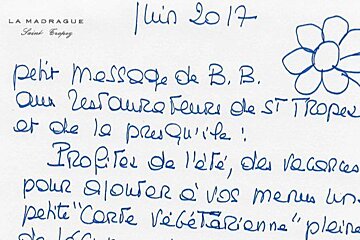 Juin 2017
LA MADRAGUE
Saint Tropez
petit message de B.B.
aux restaurateurs de St Tropez
et de la presqu'ile !
Profitez de l'été, des vacances
pour ajouter à vos menus une
petite "Carte végétarienne" pleine
de